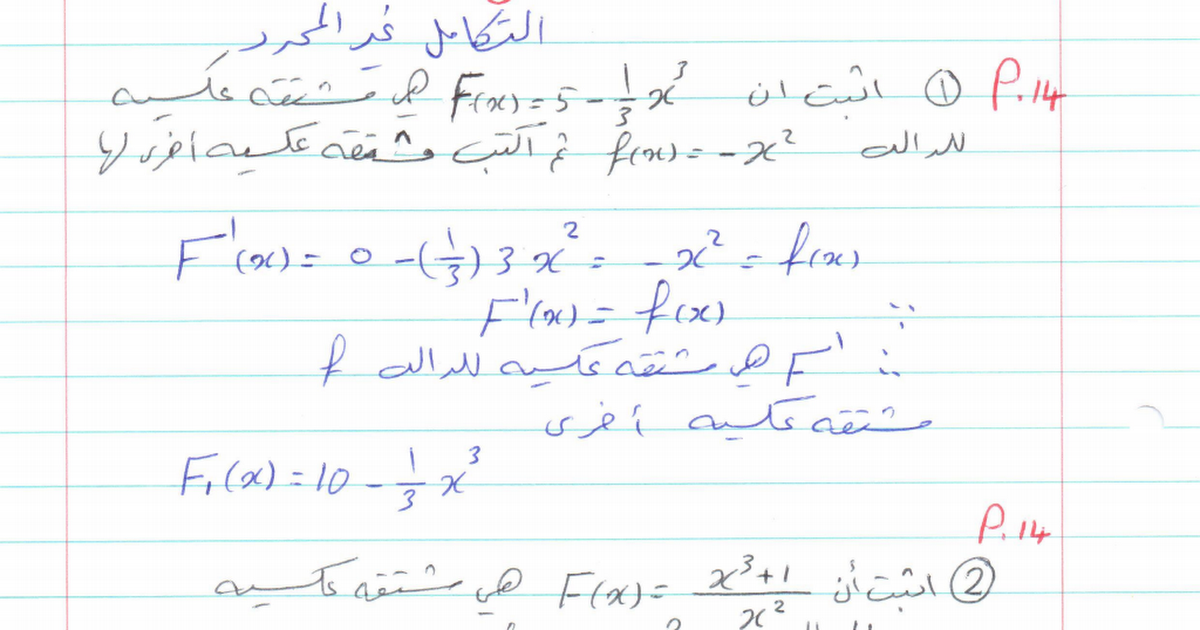 التكامل غير المحدد
P.14 ① اثبت ان F(x) = 5 - 1/3 x³ هي مشتقه عكسيه
للداله f(x) = -x² ثم اكتب مشتقه عكسيه أخرى لها
F'(x) = 0 - (1/3) 3 x² = -x² = f(x)
∵ F'(x) = f(x)
∴ F' هي مشتقه عكسيه للداله f
مشتقه عكسيه أخرى
F₁(x) = 10 - 1/3 x³
P.14
② اثبت أن F(x) = (x³+1)/x² هي مشتقه عكسيه